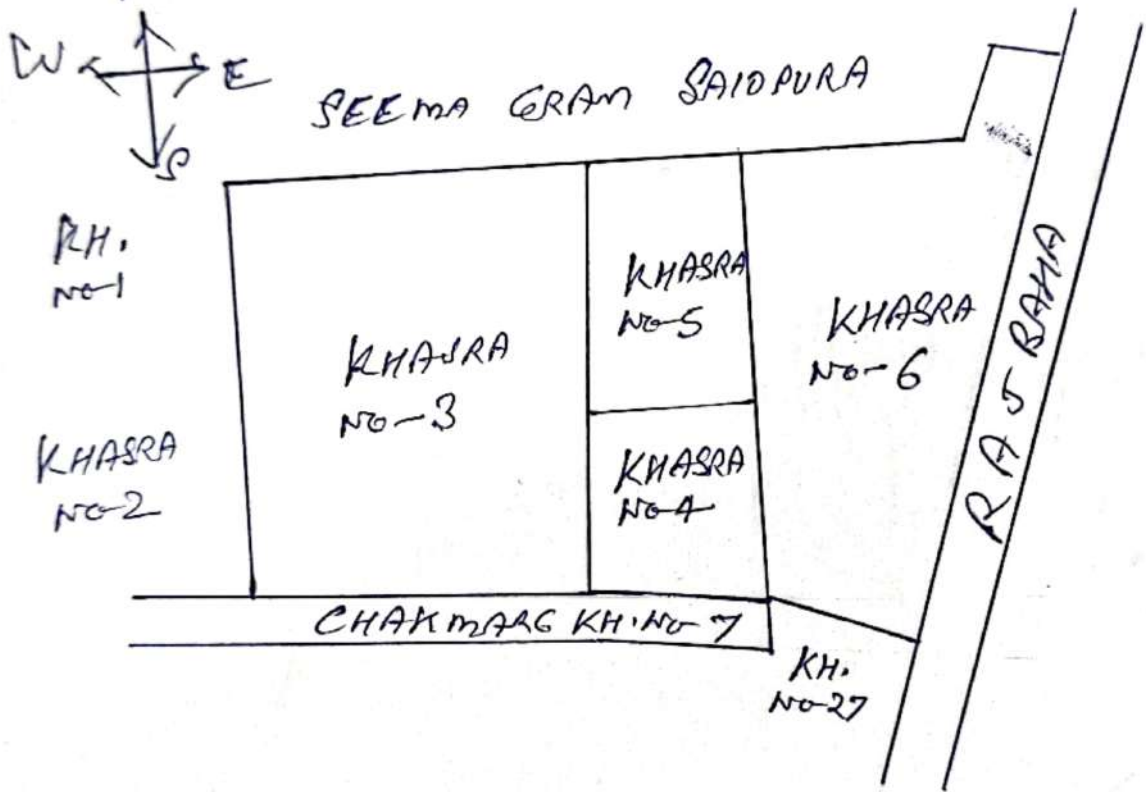 W E
S
SEEMA GRAM SAIDPURA
KH.
No-1
KHASRA
No-2
KHASRA
No-3
KHASRA
No-5
KHASRA
No-4
KHASRA
No-6
RAJBAHA
CHAKMARG KH.No-7
KH.
No-27